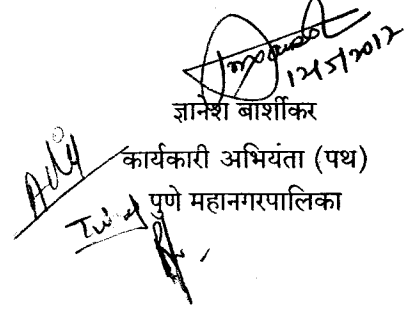 12/5/2012
ज्ञानेश बार्शीकर
कार्यकारी अभियंता (पथ)
पुणे महानगरपालिका